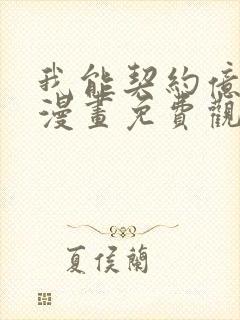 我能契約億
漫畫免費觀
夏侯蘭